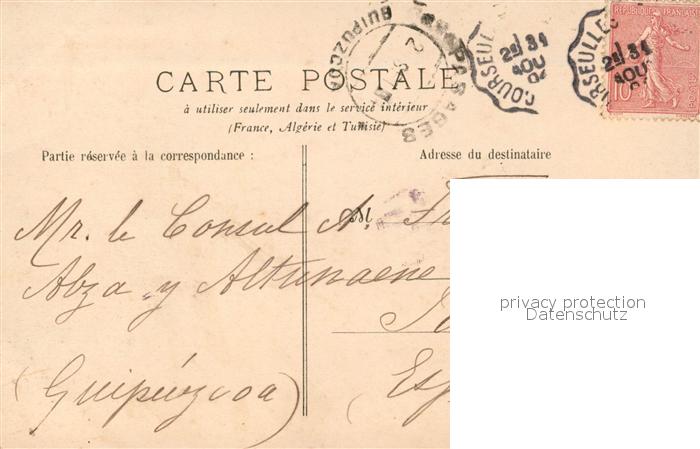 GUIPUZCOA
PASAGES
COURSEULLES
2E 31
AOU
04
URSEULLES
2E 31
AOU
REPUBLIQUE FRANÇAISE
10
CARTE POSTALE
à utiliser seulement dans le service intérieur
(France, Algérie et Tunisie)
Partie réservée à la correspondance :
Adresse du destinataire
M
Mr. le Consul A.
Abza y Altunaene
(Guipúzcoa)
Esp
privacy protection
Datenschutz